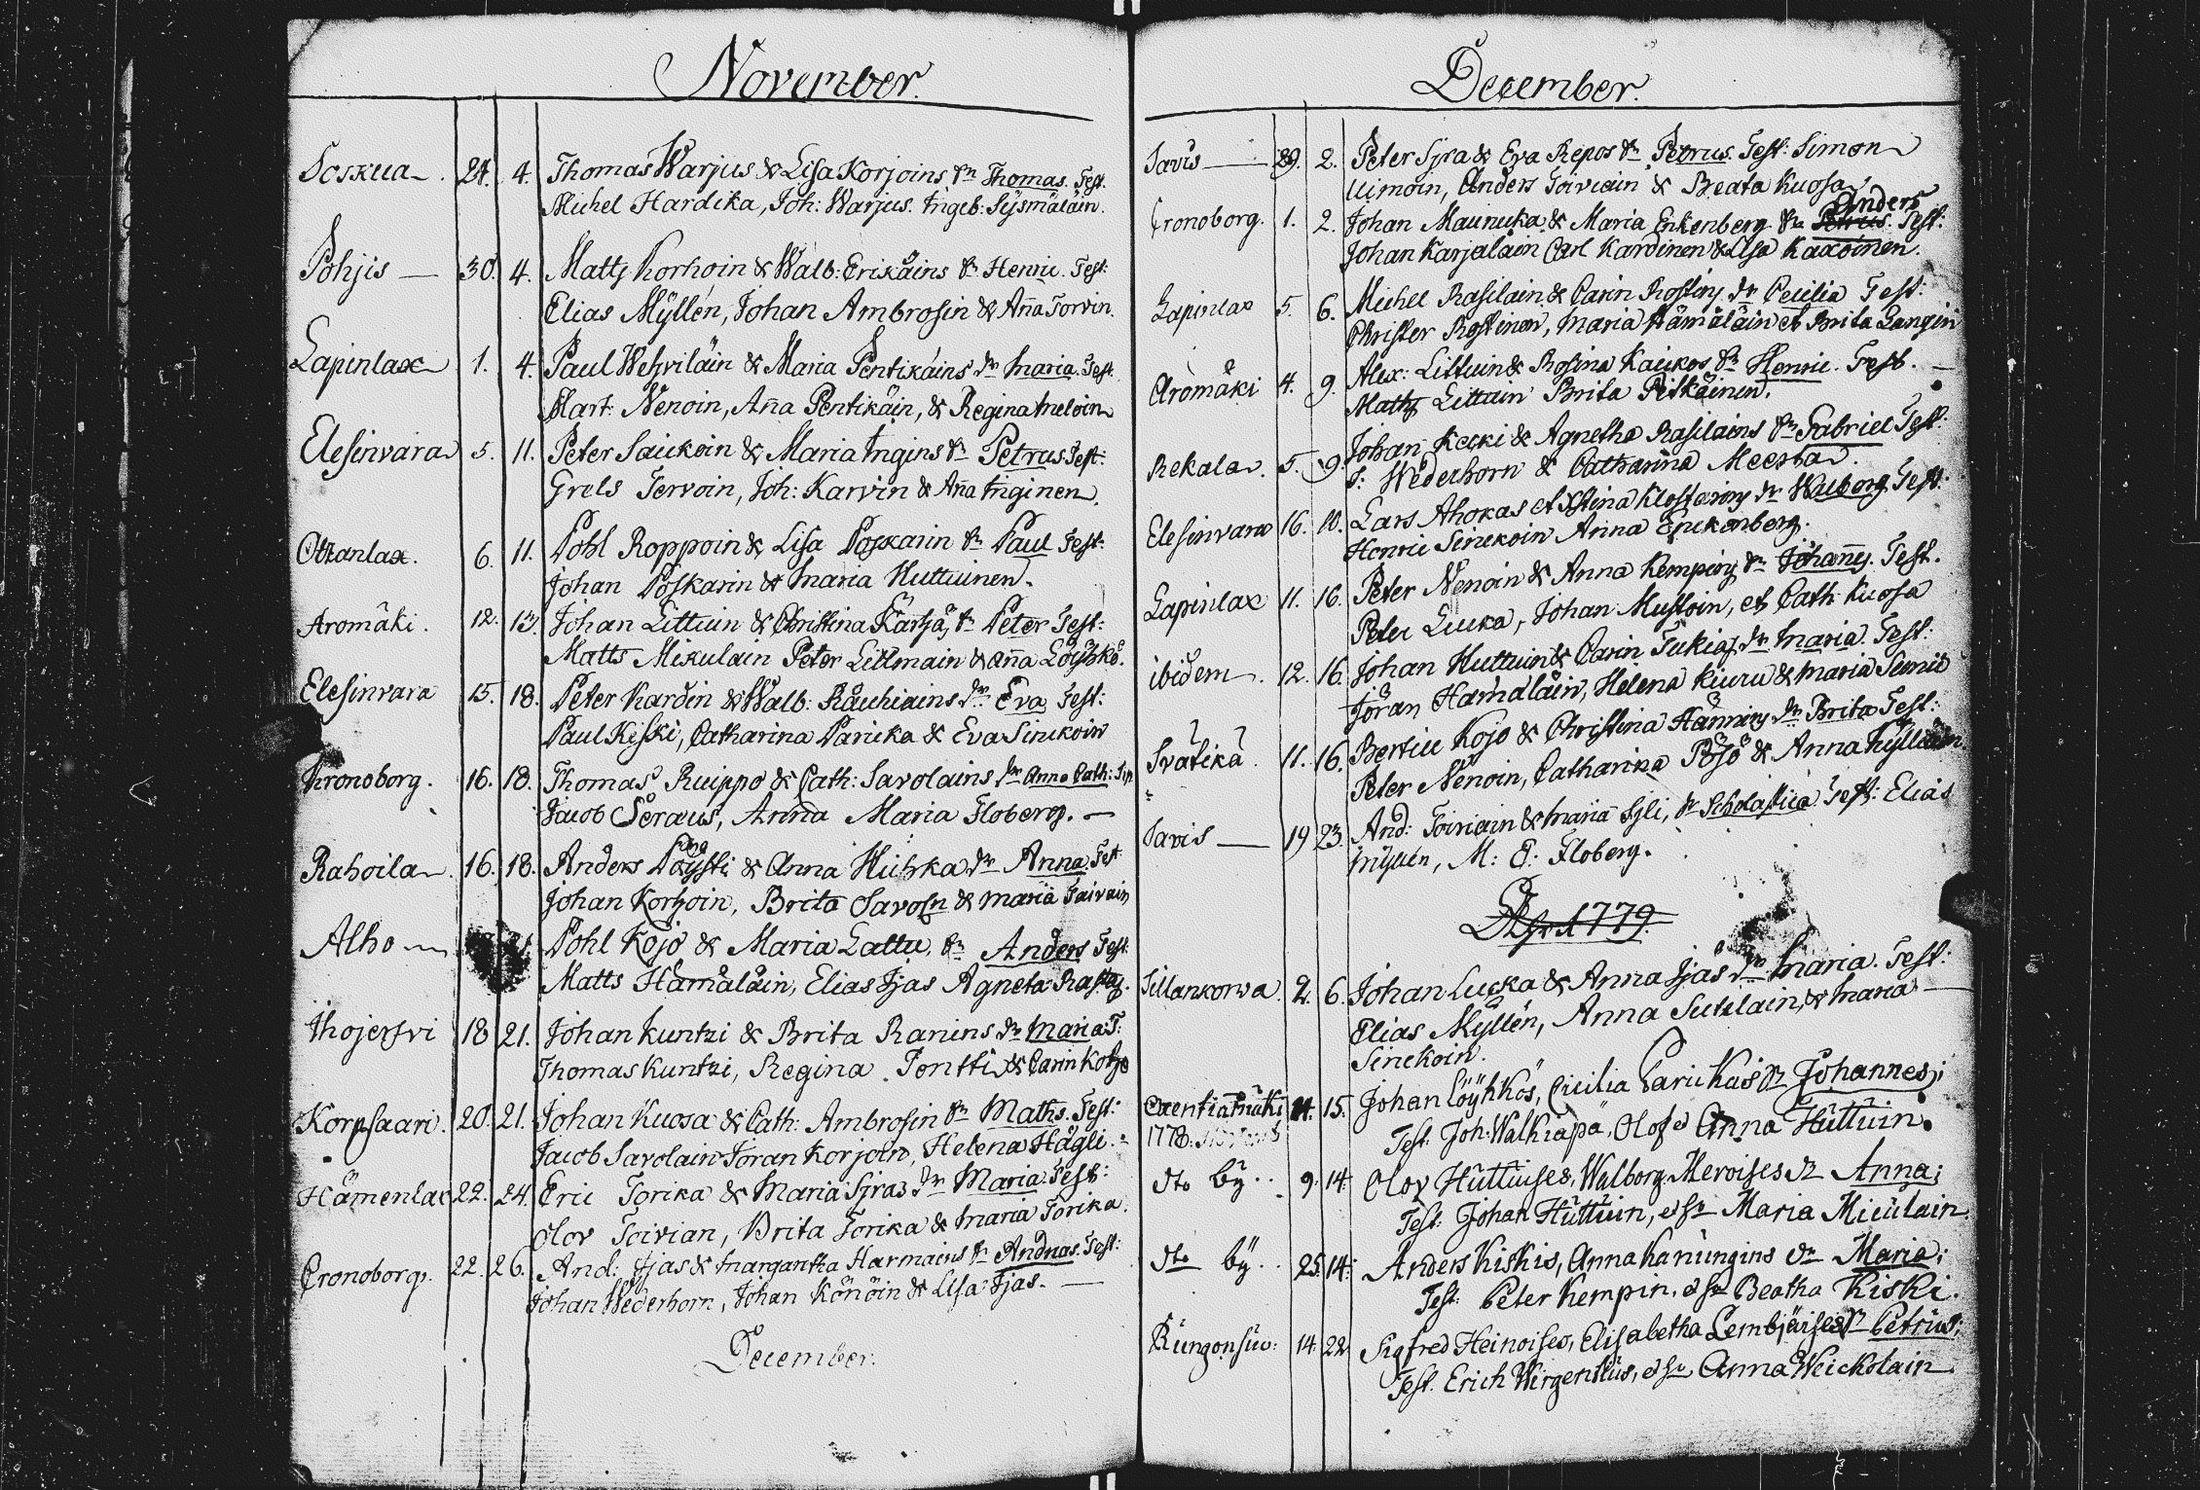 November.
Soskua. 24. 4. Thomas Warjus & Lisa Korjoins Sn Thomas. Test.
Michel Hardika, Joh: Warjus. Ingeb: Sysmäläin.
Pohjis — 30. 4. Matts Korhoin & Walb: Erikäins Sn Henric. Test:
Elias Myllén, Johan Ambrosin & Aña Torvin.
Lapinlax 1. 4. Paul Wehviläin & Maria Pentikäins Dr Maria. Test.
Mart: Nenoin, Aña Pentikäin, & Regina Meloin
Elesinvara 5. 11. Peter Saickoin & Maria Ingins Sn Petrus Test:
Grels Tervoin, Joh: Karvin & Aña Inginen.
Ottanlax. 6. 11. Pohl Roppoin & Lisa Poskarin Sn Paul Test:
Johan Poskarin & Maria Huttuinen.
Aromäki. 12. 13. Johan Littuin & Christina Kärtjä, Sn Peter Test:
Matts Mikulain Peter Littmain & aña Löyhkö.
Elesinvara 15. 18. Peter Kardin & Walb: Räuhiains Dr Eva Test:
Paul Kiski, Catharina Paricka & Eva Sinekoin
Kronoborg. 16. 18. Thomas Ruippo & Cath: Savolains Dr Anna Cath:
Jacob Seraus, Anna Maria Floberg. —
Rahoila. 16. 18. Anders Pöysti & Anna Huhka Dr Anna Test
Johan Korhoin, Brita Savoln & Maria Taivain
Alho 21. Pohl Kojo & Maria Lattu, Sn Anders Test:
Matts Hämäläin, Elias Ijas Agneta Rasty.
Ihojerfvi 18 21. Johan Kuntzi & Brita Ranins Dr Maria T:
Thomas Kuntzi, Regina Tontti & Carin Kotze
Korpsaari. 20. 21. Johan Kuosa & Cath: Ambrosin Sn Maths. Test:
Jacob Savolain Jöran Korjoin, Helena Hägli.
Hämenlax 22. 24. Eric Torika & Maria Sjras Dr Maria Test:
Olov Toivian, Brita Torika & Maria Torika.
Cronoborg. 22. 26. And: Ijas & Margaretha Harmains Sn Andreas. Test:
Johan Wederhorn, Johan Könöin & Lisa Ijas. —
December.
December.
Savis — 29. 2. Peter Sjra & Eva Repos Sn Petrus. Test: Simon
Uimoin, Anders Toiviain & Beata Kuosa
Anders
Cronoborg. 1. 2. Johan Maunuka & Maria Enkenberg Sn Petrus. Test:
Johan Karjaläin Carl Kardinen & Lisa Kaxoinen.
Lapinlax 5. 6. Michel Rasilain & Carin Rostins Dr Cecilia Test:
Christer Rostinen, Maria Hämäläin et Brita Langin
Aromäki 4. 9. Alex: Littuin & Rosina Kaukos Sn Henric. Test. —
Maths Littuin Brita Pitkäinen.
Rekala. 5. 9. Johan Kecki & Agnetha Rasilains Sn Gabriel Test:
J: Wederhorn & Catharina Meesta.
Elesinvara 16. 10. Lars Ahokas et Xstina Klostarins Dr Walborg. Test:
Henric Sinekoin Anna Enckenberg.
Lapinlax 11. 16. Peter Nenoin & Anna Kempins Sn Johannes. Test.
Peter Lucka, Johan Mustoin, et Cath Kuosa
ibidem. 12. 16. Johan Huttuin & Carin Tukias Dr Maria. Test:
Jöran Hämäläin, Helena Kiuru & Maria Sennie
Svätikä. 11. 16. Bertill Kojo & Christina Hännins Dr Brita Test:
Peter Nenoin, Catharina Pösö & Anna Kylliäin
Savis — 19 23. And: Toiviain & Maria Sjli, Dr Scholastica Test: Elias
Myllén, M: E: Floberg.
1779.
Tillankorva. 2. 6. Johan Lucka & Anna Ijäs Dr Maria. Test:
Elias Myllén, Anna Sutelain, & Maria —
Sinekoin.
11. 15. Johan Löyhkös, Cicilia Parickas Sn Johannes;
1778. Test. Joh: Walkiapä, Olof Anna Huttuin.
dto by.. 9. 14. Olov Huttuises, Walborg Meroises Dr Anna;
Test: Johan Huttuin, Maria Miculain
dto by.. 25. 14. Anders Kiskis, Anna Kanningins Dr Maria;
Test: Peter Kempin, Beatha Kiski.
Kungonsuo: 14. 22 Sigfred Heinoises, Elisabetha Lembjäises Sn Petrus;
Test. Erich Wirgentius, Anna Weickolain